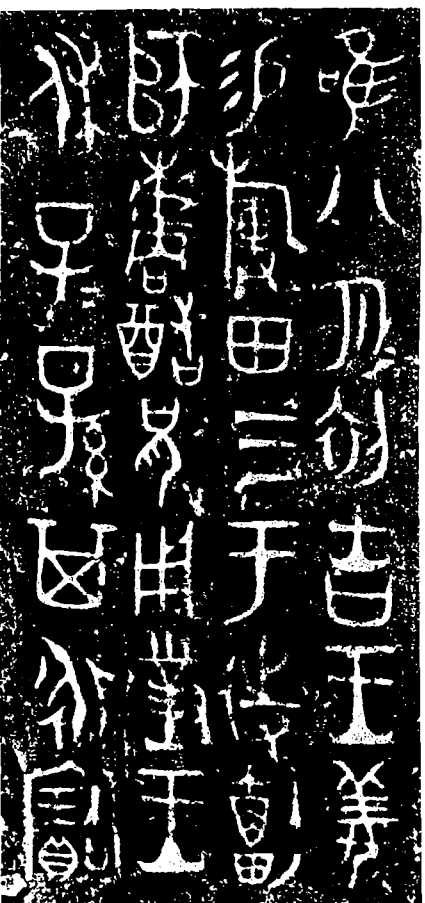 唯八月初吉王姜
易旟田三于待劘
師櫨酷兄用對王
休子=孫其永寶